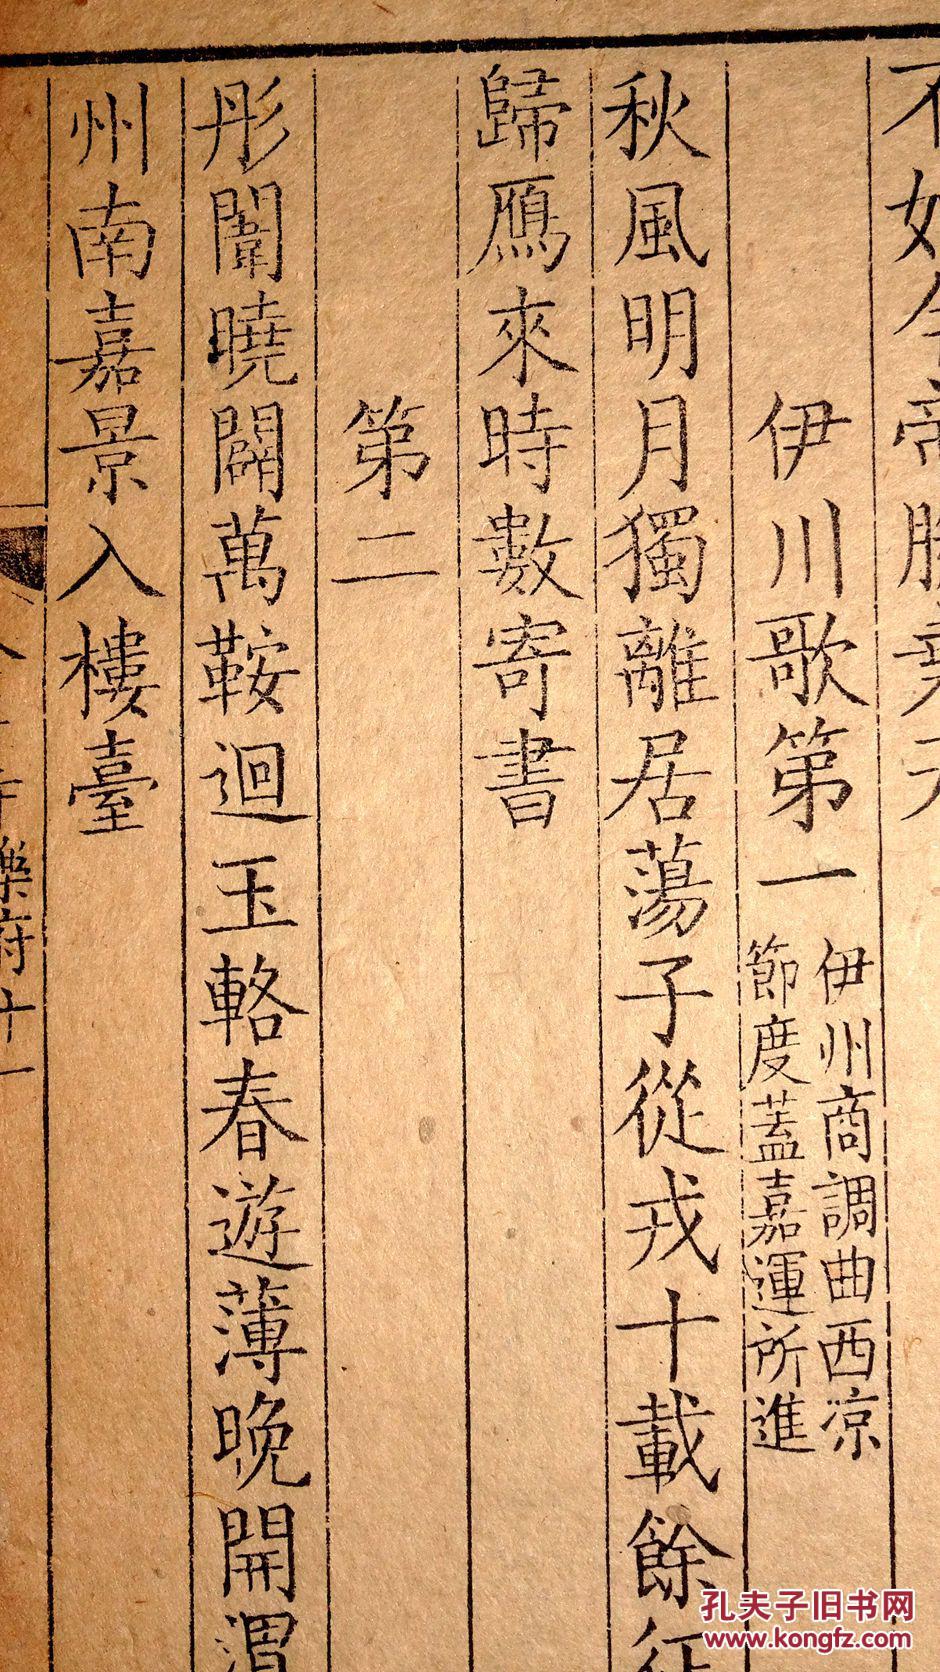 不如今帝
伊川歌第一
伊州商調曲西凉
節度蓋嘉運所進
秋風明月獨離居蕩子從戎十載餘征
歸鴈來時數寄書
第二
彤闈曉闢萬鞍迴玉輅春遊薄晚開渭
州南嘉景入樓臺
樂府十一
孔夫子旧书网
www.kongfz.com